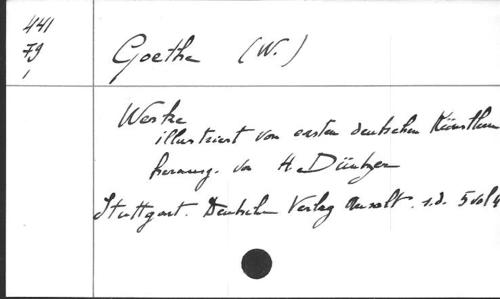 441
79
1
Goethe (W.)
Werke
illustriert von ersten deutschen Künstlern
herausg. von H. Düntzer
Stuttgart. Deutsche Verlag Anstalt. s.d. 5 vol 4